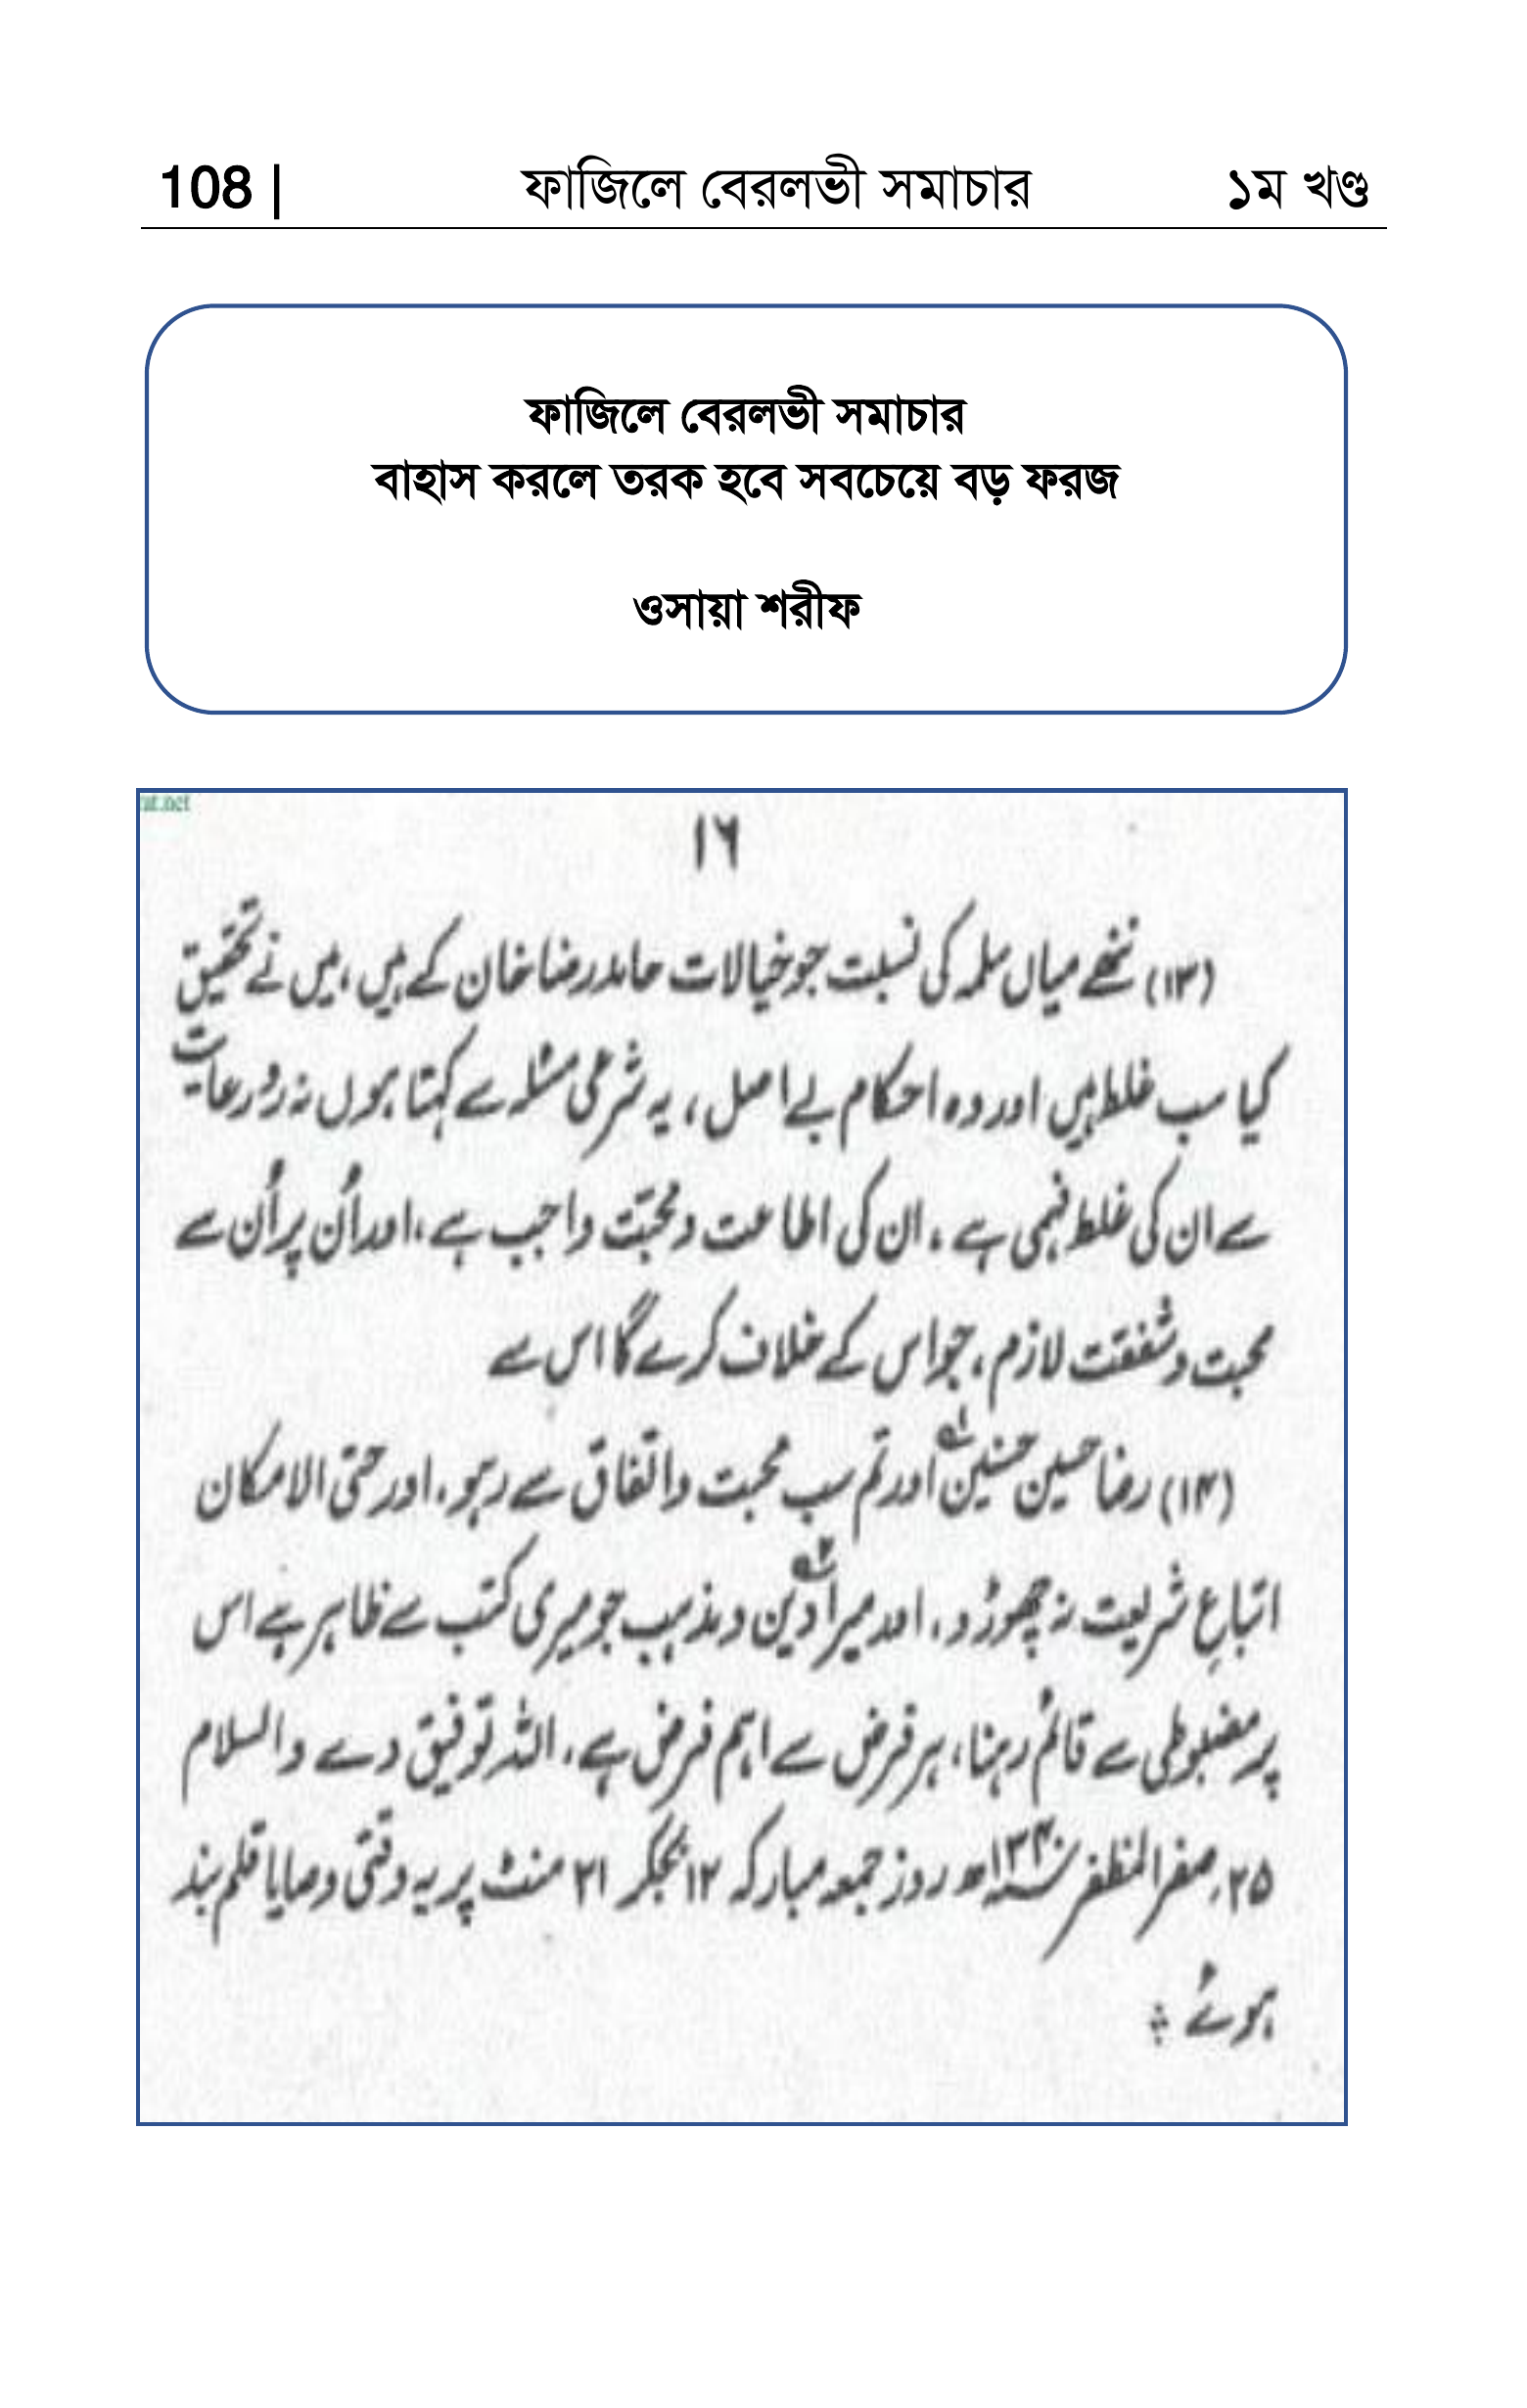 108 | ফাজিলে বেরলভী সমাচার ১ম খণ্ড
ফাজিলে বেরলভী সমাচার
বাহাস করলে তরক হবে সবচেয়ে বড় ফরজ
ওসায়া শরীফ
rat.net
۱۶
(۱۳) ننھے میاں سلمہ کی نسبت جو خیالات حامد رضا خان کے ہیں، میں نے تحقیق
کیا سب غلط ہیں اور وہ احکام بے اصل، یہ شرعی مسئلہ سے کہتا ہوں نہ رو رعایت
سے ان کی غلط فہمی ہے۔ ان کی اطاعت و محبّت واجب ہے، اور اُن پر اُن سے
محبت و شفقت لازم، جو اس کے خلاف کرے گا اس سے
(۱۴) رضا حسین حسنین اور تم سب محبت و اتفاق سے رہو، اور حتی الامکان
اتباعِ شریعت نہ چھوڑو، اور میرا دین و مذہب جو میری کتب سے ظاہر ہے اس
پر مضبوطی سے قائم رہنا، ہر فرض سے اہم فرض ہے، اللہ توفیق دے والسلام
۲۵؍ صفر المظفر ۱۳۴۰ھ روز جمعہ مبارکہ ۱۲ بجکر ۲۱ منٹ پر یہ وقتی وصایا قلم بند
ہوئے